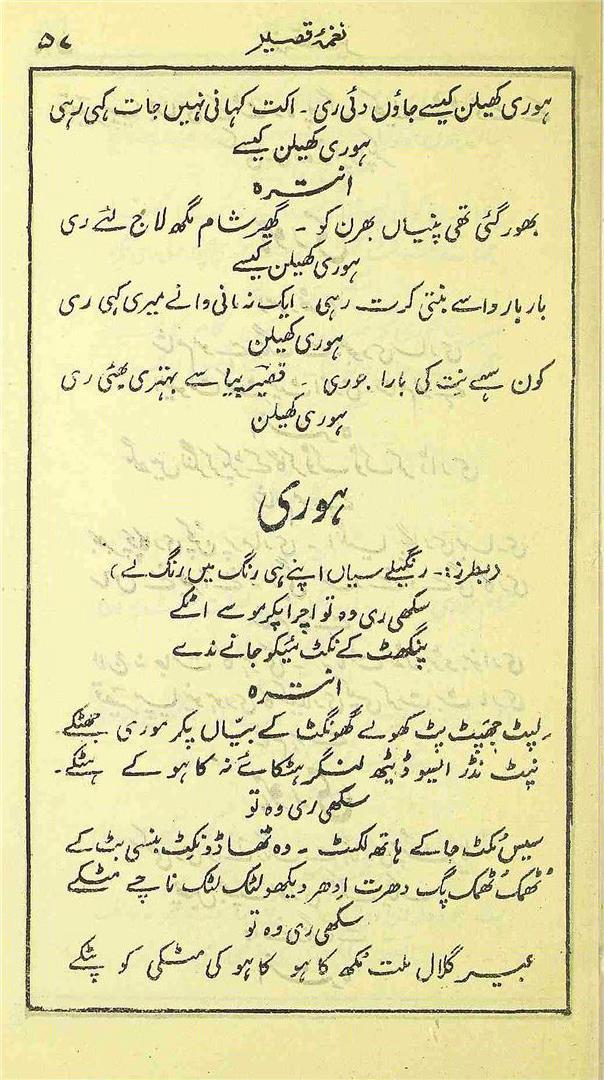 نغمۂ قصیر
۵۷
ہوری کھیلن کیسے جاؤں دئی ری ۔ اکت کہانی نہیں جات کہی رہی
ہوری کھیلن کیسے
انترہ
بھور گئی تھی پنیاں بھرن کو ۔ گھیر شام مگھ لاج لئے ری
ہوری کھیلن کیسے
بار بار وا سے بنتی کرت رہی ۔ ایک نہ مانی وانے میری کہی ری
ہوری کھیلن
کون سہے نت کی بارا جوری ۔ قصیرؔ پیا سے بہتری بھئی ری
ہوری کھیلن
ہوری
(بطرز :۔ رنگیلے سیاں اپنے ہی رنگ میں رنگ لے)
سکھی ری وہ تو اچرا پکر موسے اٹکے
پنگھٹ کے نکٹ نیکو جانے ندے
انترہ
لپٹ جھپٹ پٹ کھولے گھونگٹ کے بیّاں پکر موری جھٹکے
نپٹ نڈر ایسو ڈیٹھ لنگر ہٹکائے نہ کاہو کے ہٹکے ۔
سکھی ری وہ تو
سیس مُکٹ جا کے ہاتھ لکٹ ۔ وہ ٹھاڈو نکٹ بنسی بٹ کے
ٹھمک ٹھمک پگ دھرت اِدھر دیکھو لٹک لٹک ناچے مٹکے
سکھی ری وہ تو
عبیر گلال ملت مُکھ کاہو کاہو کی مٹکی کو پٹکے